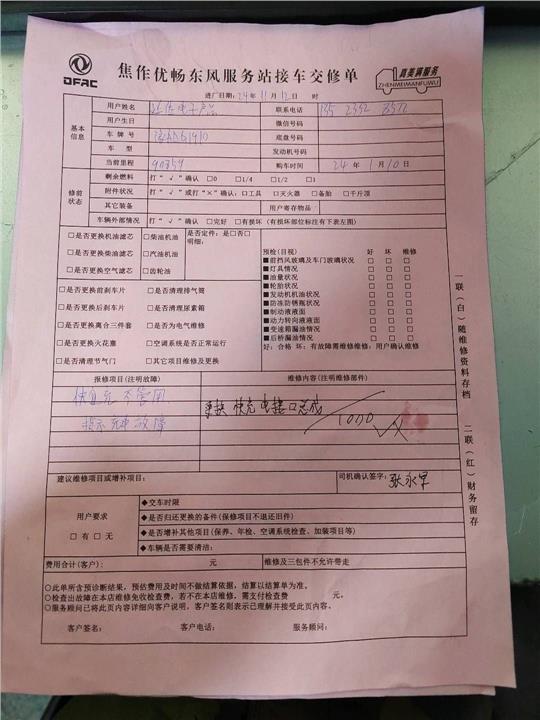 DFAC
焦作优畅东风服务站接车交修单
真美满服务
ZHENMEIMANFUWU
进厂日期:24年11月12日 时
基本信息
用户姓名
联系电话
用户生日
微信号码
车牌号
底盘号码
车型
发动机号码
当前里程
购车时间 24年1月10日
修前状态
剩余燃料 打“√”确认 □0 □1/4 □1/2 □1
附件状况 打“√”或打“×”确认:□工具 □灭火器 □备胎 □千斤顶
其它装备 用户寄存物品:
车辆外部情况 打“√”确认 □完好 □有损坏(有损坏部位标注有下表左图)
□是否更换机油滤芯 □柴油机油 是否定件:是□否□
□是否更换柴油滤芯 □汽油机油 明细:
□是否更换空气滤芯 □齿轮油
□是否更换前刹车片 □是否清理排气筒
□是否更换后刹车片 □是否清理尿素箱
□是否更换离合三件套 □是否为电气维修
□是否更换火花塞 □空调系统是否正常运行
□是否清理节气门 □其它项目维修及更换
预检(目视) 好 坏 维修
■前挡风玻璃及车门玻璃状况 □ □ □
■灯具情况 □ □ □
■油量状况 □ □ □
■轮胎状况 □ □ □
■发动机机油状况 □ □ □
■防冻防锈瓶状况 □ □ □
■制动液液面 □ □ □
■动力转向液液面 □ □ □
■变速箱漏油情况 □ □ □
■后桥漏油情况 □ □ □
好:合格 坏:有故障需维修维修:用户确认维修
报修项目(注明故障) 维修内容(注明维修部件)
快直充不管用
更换快充电接口总成 1000
指示充电故障
建议维修项目或增补项目:
司机确认签字:张永军
用户要求
□有□无
◆交车时限
◆是否归还更换的备件(保修项目不退还旧件)
◆是否增补其他项目(保养、年检、空调系统检查、加装项目等)
◆车辆是否需要清洁:
费用合计(客户): 元 维修及三包件不允许带走
○此单所含预诊断结果,预估费用及时间不做结算依据,结算以结算单为准。
○检查出故障在本店维修免收检查费,若不在本店维修,需支付检查费 元。
○服务顾问已将此页内容详细向客户说明,客户签名则表示已理解并接受此页内容。
客户签名: 客户电话: 服务顾问:
一联(白)随维修资料存档
二联(红)财务留存